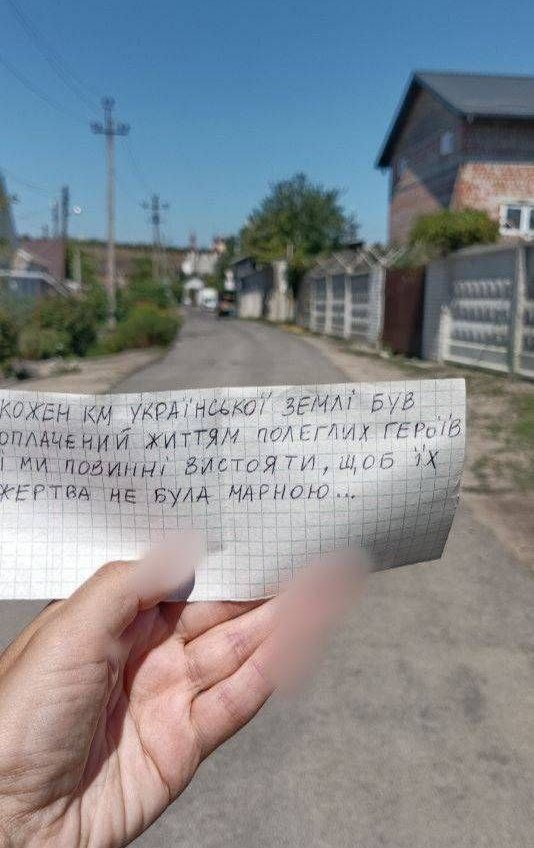 КОЖЕН КМ УКРАЇНСЬКОЇ ЗЕМЛІ БУВ
ОПЛАЧЕНИЙ ЖИТТЯМ ПОЛЕГЛИХ ГЕРОЇВ
І МИ ПОВИННІ ВИСТОЯТИ, ЩОБ ЇХ
ЖЕРТВА НЕ БУЛА МАРНОЮ...